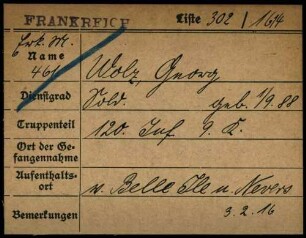 FRANKREICH Liste 302/164
Erk. M.
Name Wolz, Georg
461
Dienstgrad Sold. geb. 1/9.88
Truppenteil 120. Inf 9. K.
Ort der Gefangennahme
Aufenthaltsort v. Belle Ile n. Nevers
Bemerkungen 3.2.16